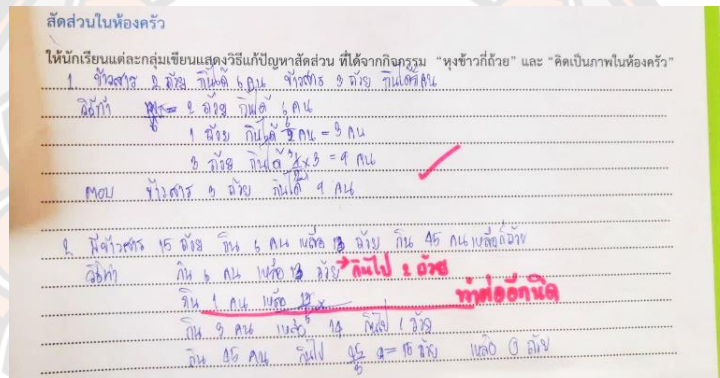 สัดส่วนในห้องครัว
ให้นักเรียนแต่ละกลุ่มเขียนแสดงวิธีแก้ปัญหาสัดส่วน ที่ได้จากกิจกรรม “หุงข้าวกี่ถ้วย” และ “คิดเป็นภาพในห้องครัว”
1. ข้าวสาร 2 ถ้วย กินได้ 6 คน ข้าวสาร 3 ถ้วย กินได้กี่คน
วิธีทำ 2 ถ้วย กินได้ 6 คน
1 ถ้วย กินได้ คน = 3 คน
3 ถ้วย กินได้ x3 = 9 คน
ตอบ ข้าวสาร 3 ถ้วย กินได้ 9 คน
2. มีข้าวสาร 15 ถ้วย กิน 6 คน เหลือ 13 ถ้วย กิน 45 คน เหลือกี่ถ้วย
วิธีทำ กิน 6 คน เหลือ 13 ถ้วย → กินไป 2 ถ้วย
กิน 1 คน เหลือ ทำต่ออีกนิด
กิน 3 คน เหลือ 14 กินไป 1 ถ้วย
กิน 45 คน กินไป = 15 ถ้วย เหลือ 0 ถ้วย